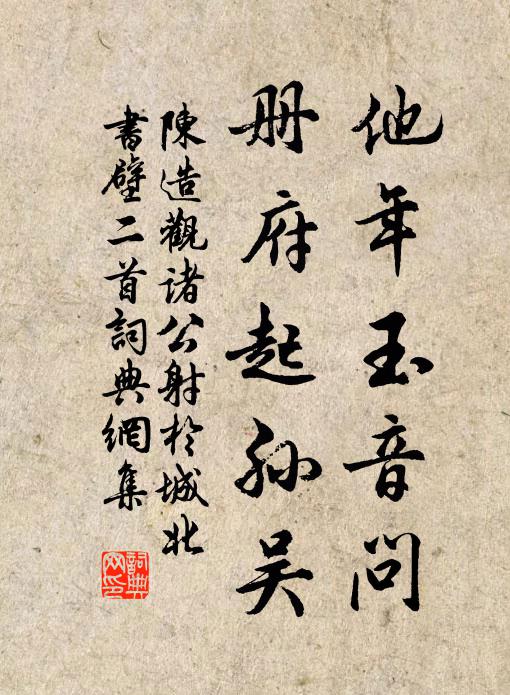 他年玉音問
册府起孙吴
陳造觀諸公射於城北
書壁二首詞典網集
詞典网印